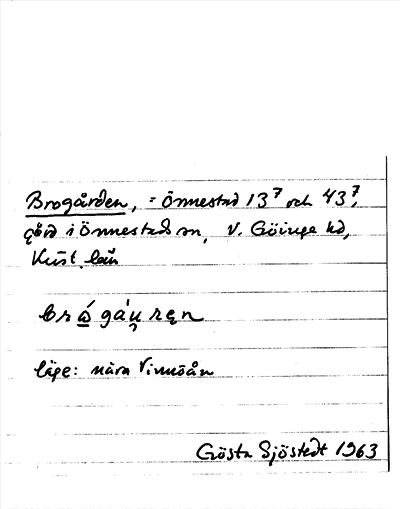 Brogården, = Önnestad 13⁷ och 43⁷,
gård i Önnestads sn, V. Göinge hd,
Krist. län
läge: nära Vinnöån
Gösta Sjöstedt 1963